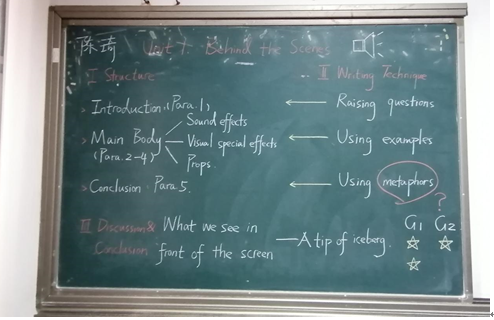 陈琦 Unit 7 Behind the Scenes
I Structure II Writing Technique
Introduction (Para.1) ← Raising questions
Sound effects
Main Body Visual special effects ← Using examples
(Para.2-4) Props
Conclusion Para 5. ← Using metaphors
?
III Discussion & What we see in G1 G2
Conclusion front of the screen — A tip of iceberg.